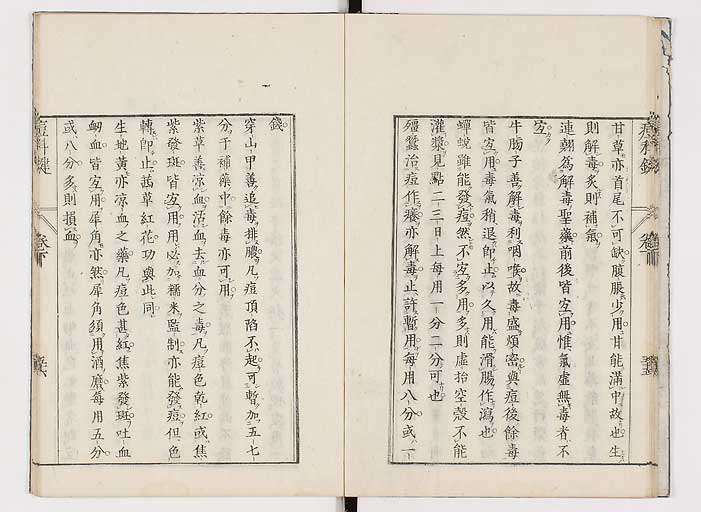 甘草亦首尾不可缺腹脹少用甘能滿中故也生
則解毒炙則補氣
連翹爲解毒聖藥前後皆宜用惟氣虛無毒者不
宜
牛蒡子善解毒利咽喉故毒盛煩密與痘後餘毒
皆宜用毒氣稍退卽止以久用能滑腸作瀉也
蟬蛻雖能發痘然不宜多用多則虛抬空殼不能
灌漿見點二三日上每用一分二分可也
殭蠶治痘作癢亦解毒止許暫用每用八分或一
錢
穿山甲善追毒排膿凡痘頂陷不起可暫加五七
分于補藥中餘毒亦可用
紫草善涼血活血去血分之毒凡痘色乾紅或焦
紫發斑皆宜用用必加糯米監制亦能發痘但色
轉卽止茜草紅花功與此同
生地黃亦涼血之藥凡痘色甚紅焦紫發斑吐血
衂血皆宜用犀角亦然犀角須用酒磨每用五分
或八分多則損血
痘科鍵
卷下